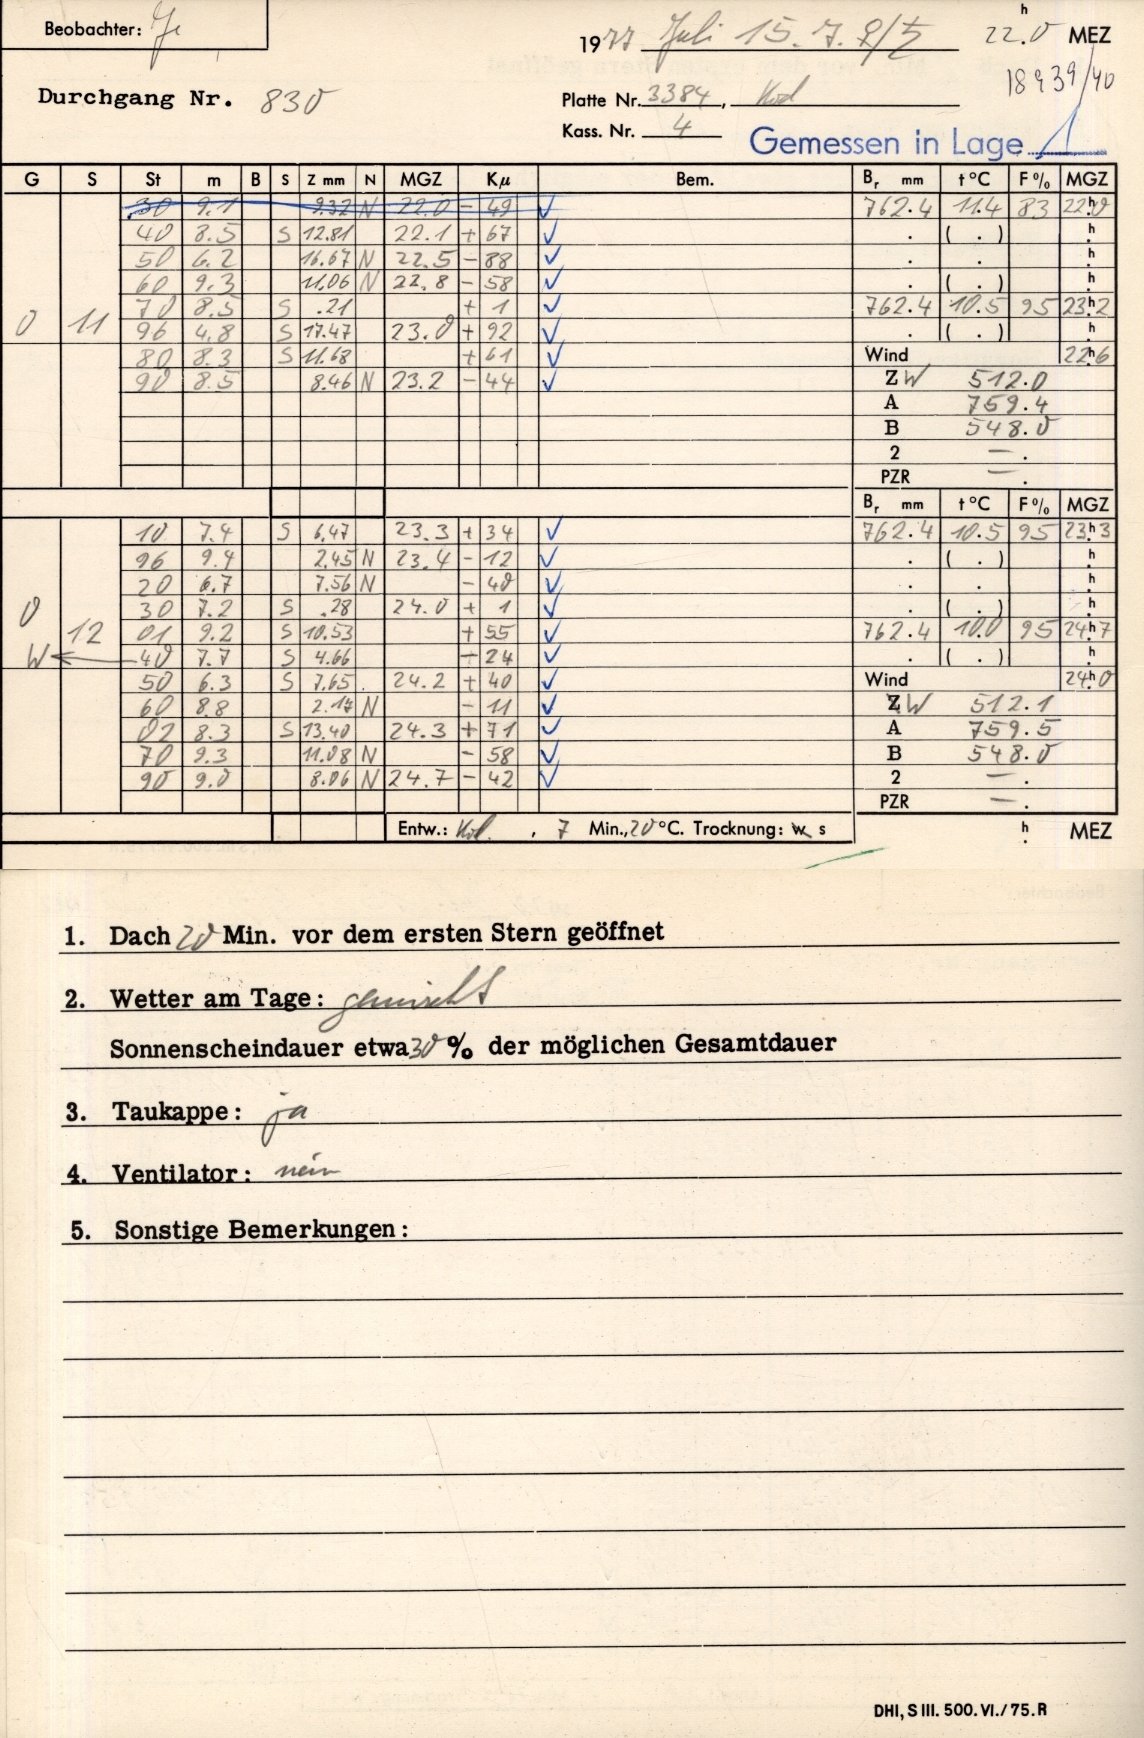 Beobachter: Je
1977 Juli 15. 7. 22.0 h MEZ
18939/40
Durchgang Nr. 830
Platte Nr. 3384, Kod
Kass. Nr. 4
Gemessen in Lage 1
G S St m B S Z mm N MGZ Kµ Bem. Br mm t°C F% MGZ
30 9.1 9.32 N 22.0 - 49 ✓ 762.4 11.4 83 22h0
40 8.5 S 12.81 22.1 + 67 ✓ . ( . ) h
50 6.2 16.67 N 22.5 - 88 ✓ . . h
60 9.3 11.06 N 22.8 - 58 ✓ . ( . ) h
0 11 70 8.5 S .21 + 1 ✓ 762.4 10.5 95 23h2
96 4.8 S 17.47 23.0 + 92 ✓ . ( . ) h
80 8.3 S 11.68 + 61 ✓ Wind 22h6
90 8.5 8.46 N 23.2 - 44 ✓ Z W 512.0
A 759.4
B 548.0
2 — .
PZR — .
Br mm t°C F% MGZ
10 7.4 S 6.47 23.3 + 34 ✓ 762.4 10.5 95 23h3
96 9.4 2.45 N 23.4 - 12 ✓ . ( . ) h
20 6.7 7.56 N - 40 ✓ . . h
0 30 7.2 S .28 24.0 + 1 ✓ . ( . ) h
12 01 9.2 S 10.53 + 55 ✓ 762.4 10.0 95 24h7
W ← 40 7.7 S 4.66 - 24 ✓ . ( . ) h
50 6.3 S 7.65 24.2 + 40 ✓ Wind 24h0
60 8.8 2.17 N - 11 ✓ Z W 512.1
02 8.3 S 13.40 24.3 + 71 ✓ A 759.5
70 9.3 11.08 N - 58 ✓ B 548.0
90 9.0 8.06 N 24.7 - 42 ✓ 2 — .
PZR — .
Entw.: Kod. , 7 Min., 20 °C. Trocknung: w s h MEZ
1. Dach 20 Min. vor dem ersten Stern geöffnet
2. Wetter am Tage: gemischt
Sonnenscheindauer etwa 30 % der möglichen Gesamtdauer
3. Taukappe: ja
4. Ventilator: nein
5. Sonstige Bemerkungen:
DHI, S III. 500. VI./75. R